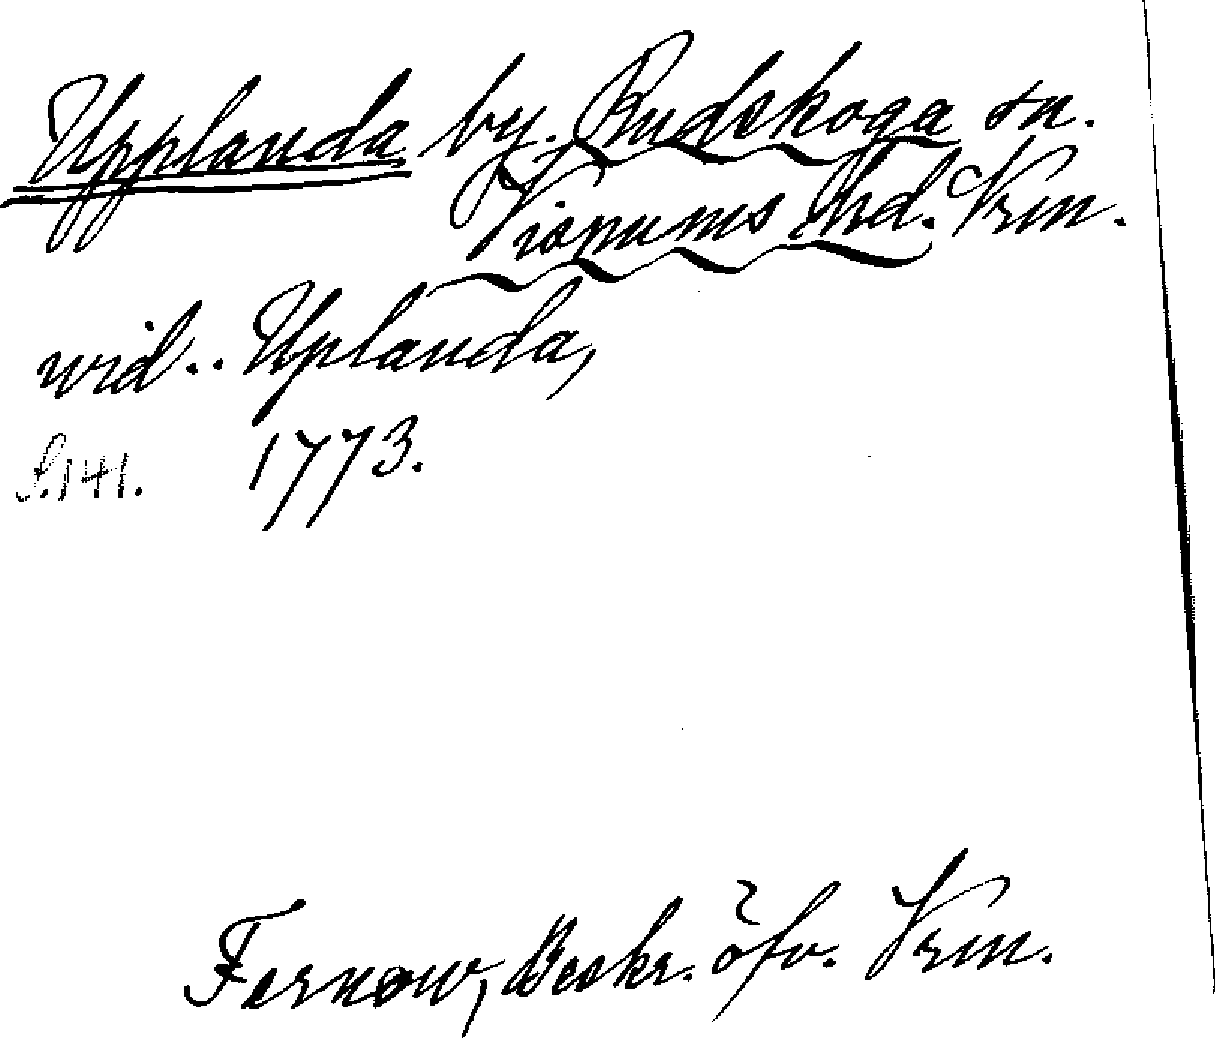 Upplanda by. Rudskoga sn.
Visnums hd. Vrm.
wid.. Uplanda,
S. 141. 1773.
Fernow, Beskr. öfv. Vrm.